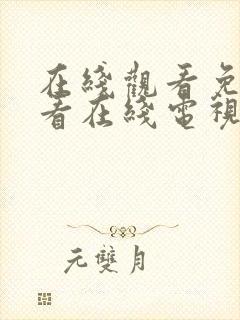 在綫觀看免
看在綫電視
元雙月